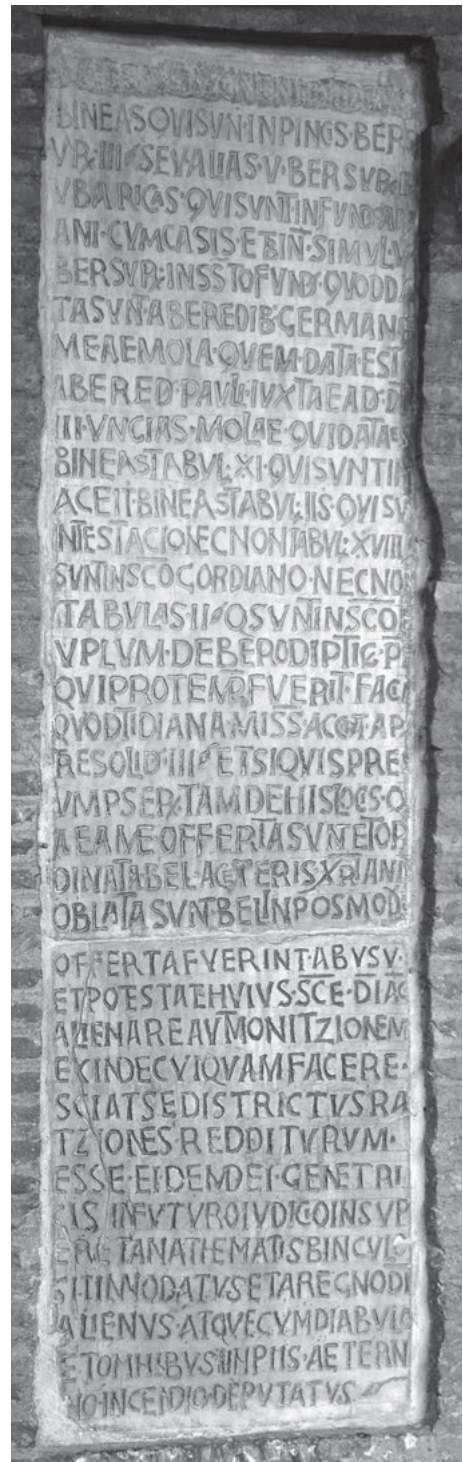 BINEAS QUI SUN·IN PINCIS·BER
UR·III SEU ALIAS·V·BERSUR·
UBARICAS·QUI SUNT IN FUND·
ANI·CUM CASIS·ET BIN·SIMUL·U
BERSUR·IN SSTO FUND·QUOD DA
TA SUNT AB EREDIB·GERMAN
MEAE MOLA·QUEM·DATA EST
AB ERED·PAULI·IUXTA EAD·D
III·UNCIAS·MOLAE·QUI DATA ES
BINEAS TABUL·XI·QUI SUNT IN
ACEII·BINEAS TABUL·IIS·QUI SU
NT ESTACIO NEC NON TABUL·XVIII
SUNT IN SCO CORDIANO·NEC NO
TABULAS·II Q SUNT IN SCO
UPLUM·DEBERO DIPTIC·P
QUI PRO TEMP·FUERIT·FACI
QUODTIDIANA·MISS·AC
RE SOLID·III ET SI QUIS PRES
UMPSER·TAM DE HIS LOCS·Q
AE A ME OFFERTA SUNT ET OR
DINATA·BEL·A CETERIS XPIANI
OBLATA SUNT·BEL IN POSMOD
OFFERTA FUERINT·AB USU·
ET POTESTATE HUIUS·SCE·DIAC
ALIENARE AUT MONITZIONEM
EXINDE CUIQUAM FACERE·
SCIAT SE DISTRICTUS RA
TZIONES·REDDITURUM·
ESSE·EIDEM DEI·GENETRI
CIS IN FUTURO IUDICIO INSUP
ER ET ANATHEMATIS BINCUL
SIT INNODATUS ET A REGNO DI
ALIENUS·ATQUE CUM DIABULO
ET OMNIBUS IMPIIS·AETERN
NO·INCENDIO·DEPUTATUS